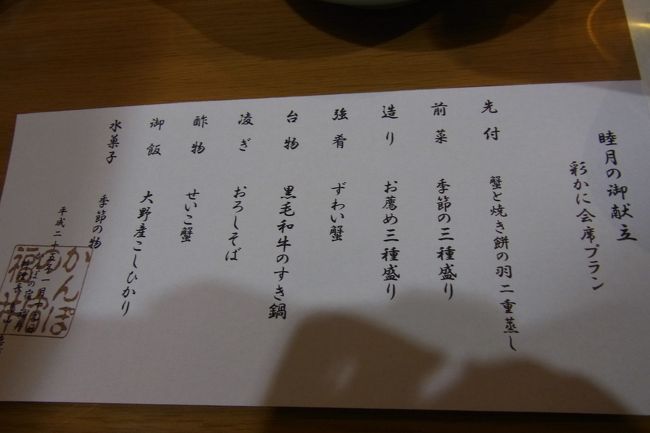 睦月の御献立
彩かに会席プラン
先付 蟹と焼き餅の羽二重蒸し
前菜 季節の三種盛り
造り お薦め三種盛り
強肴 ずわい蟹
台物 黒毛和牛のすき鍋
凌ぎ おろしそば
酢物 せいこ蟹
御飯 大野産こしひかり
水菓子 季節の物
平成二十五年一月
かんぽ
の宿
福井